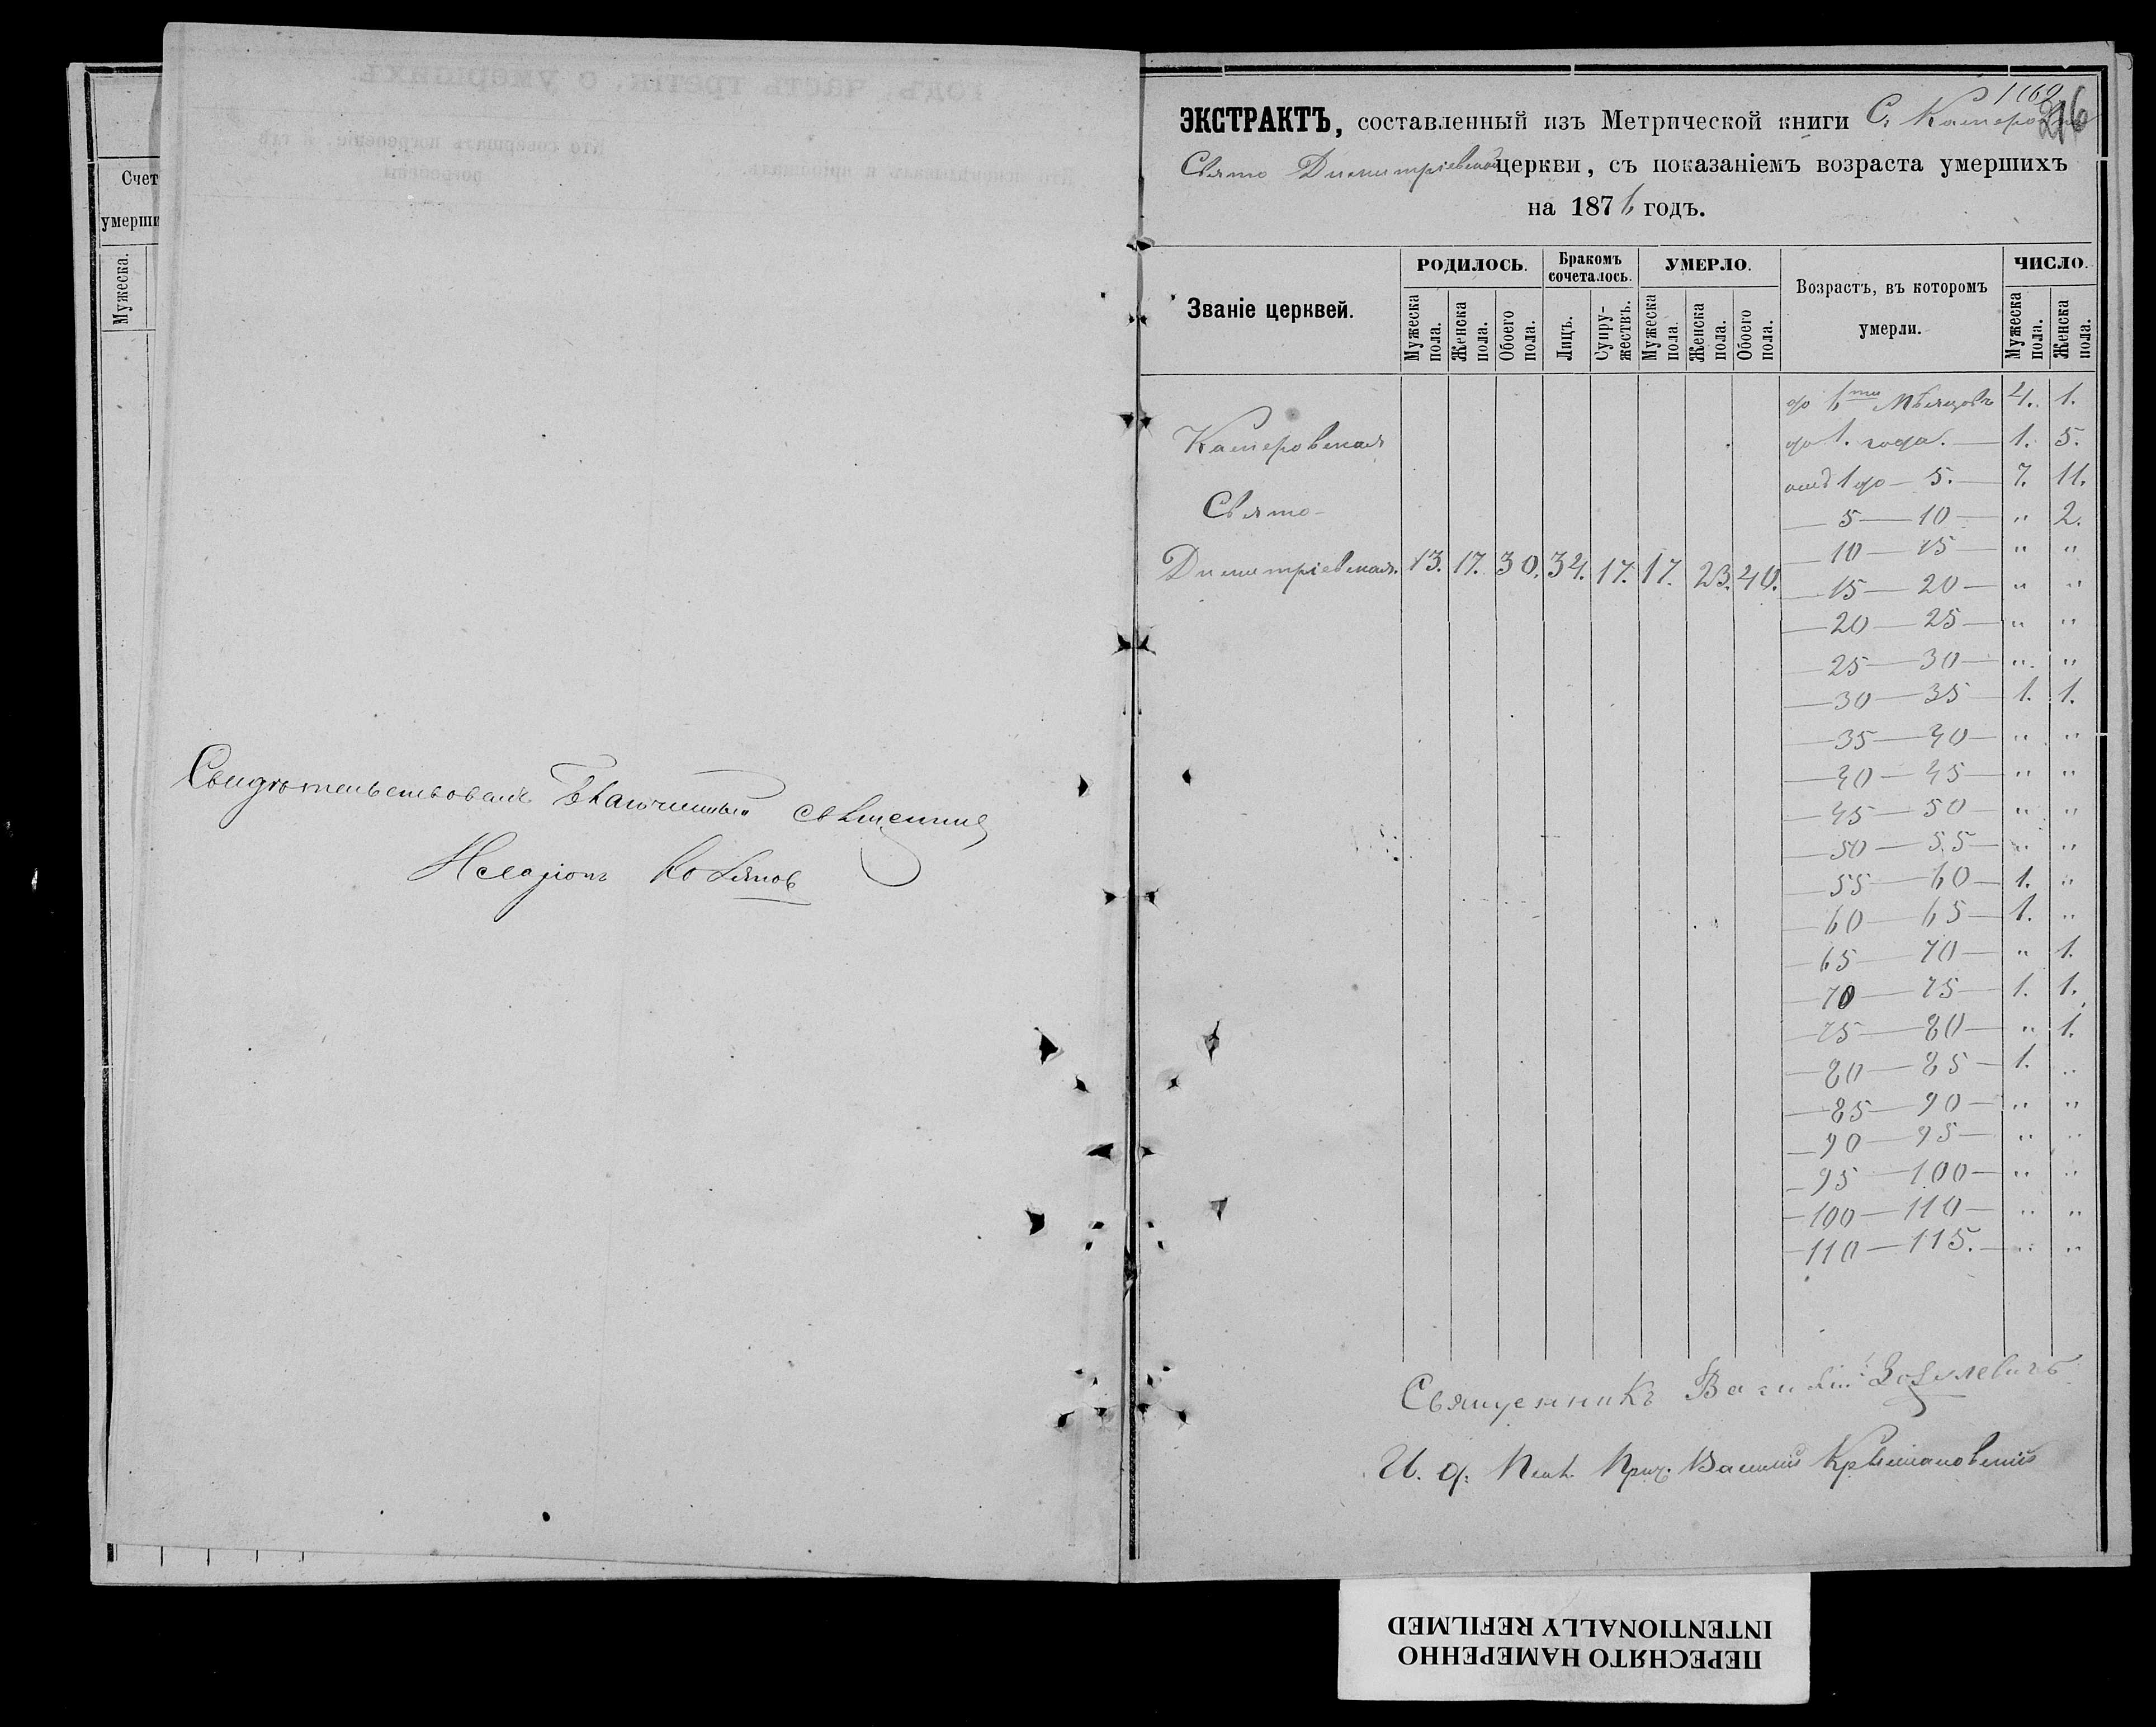 Счет
умерши
Мужеска.
Свидѣтельствовалъ Благочинный священникъ
1162
216
ЭКСТРАКТЪ, составленный изъ Метрической книги С. Катеровки
Свято Димитріевской церкви, съ показаніемъ возраста умершихъ
на 1876 годъ.
Званіе церквей.
РОДИЛОСЬ.
Бракомъ сочеталось.
УМЕРЛО.
Возрастъ, въ которомъ умерли.
ЧИСЛО.
Мужеска пола.
Женска пола.
Обоего пола.
Лицъ.
Супружествъ.
Мужеска пола.
Женска пола.
Обоего пола.
Мужеска пола.
Женска пола.
до 6ти Мѣсяцовъ 4. 1.
Катеровская
до 1. года. — 1. 5.
отъ 1 до — 5. — 7. 11.
Свято-
— 5 — 10 — " 2.
— 10 — 15 — " "
Димитріевская. 13. 17. 30. 34. 17. 17. 23. 40.
— 15 — 20 — " "
— 20 — 25 — " "
— 25 — 30 — " "
— 30 — 35 — 1. 1.
— 35 — 40 — " "
— 40 — 45 — " "
— 45 — 50 — " "
— 50 — 55 — " "
— 55 — 60 — 1. "
— 60 — 65 — 1. "
— 65 — 70 — " 1.
— 70 — 75 — 1. 1.
— 75 — 80 — " 1.
— 80 — 85 — 1. "
— 85 — 90 — " "
— 90 — 95 — " "
— 95 — 100 — " "
— 100 — 110 — " "
— 110 — 115. — " "
Священникъ Василій
И. д. Псал. Василій Крыжановскій
ПЕРЕСНЯТО НАМЕРЕННО
INTENTIONALLY REFILMED